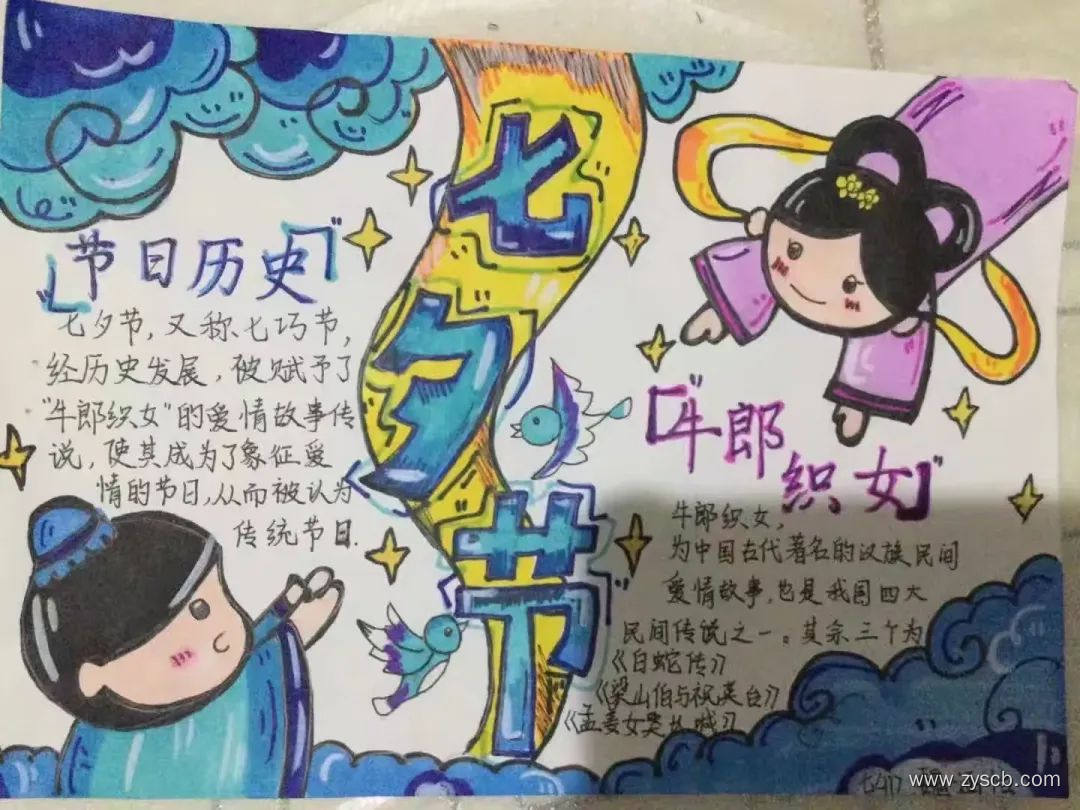 七夕节
「节日历史」
七夕节，又称七巧节，
经历史发展，被赋予了
"牛郎织女"的爱情故事传
说，使其成为了象征爱
情的节日，从而被认为
传统节日.
「牛郎
织女」
牛郎织女，
为中国古代著名的汉族民间
爱情故事，也是我国四大
民间传说之一。其宗三个为
《白蛇传》
《梁山伯与祝英台》
《孟姜女哭长城》
www.zyscb.com